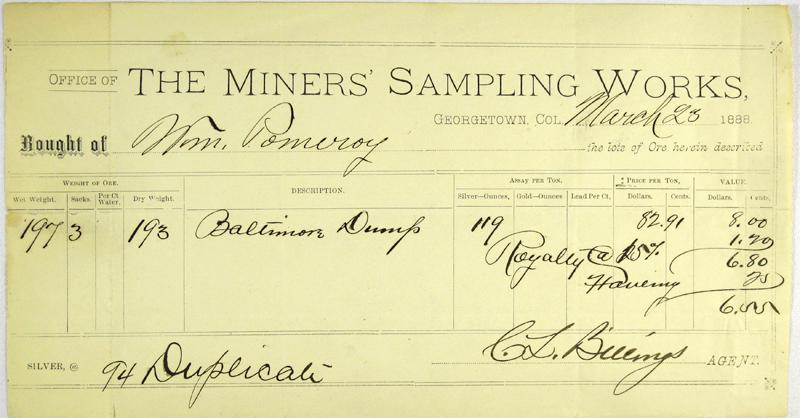 OFFICE OF THE MINERS' SAMPLING WORKS,
GEORGETOWN, COL. March 23 1888
Bought of Wm. Pomeroy the lots of Ore herein described
WEIGHT OF ORE. DESCRIPTION. ASSAY PER TON, PRICE PER TON, VALUE.
Wet Weight. Sacks. Per Ct Water. Dry Weight. Silver—Ounces, Gold—Ounces Lead Per Ct, Dollars. Cents. Dollars. Cents.
197 3 193 Baltimore Dump 119 82.91 8.00
Royalty @ 15% 1.20
6.80
25
6.55
SILVER, @ 94 Duplicate C. L. Billings AGENT.